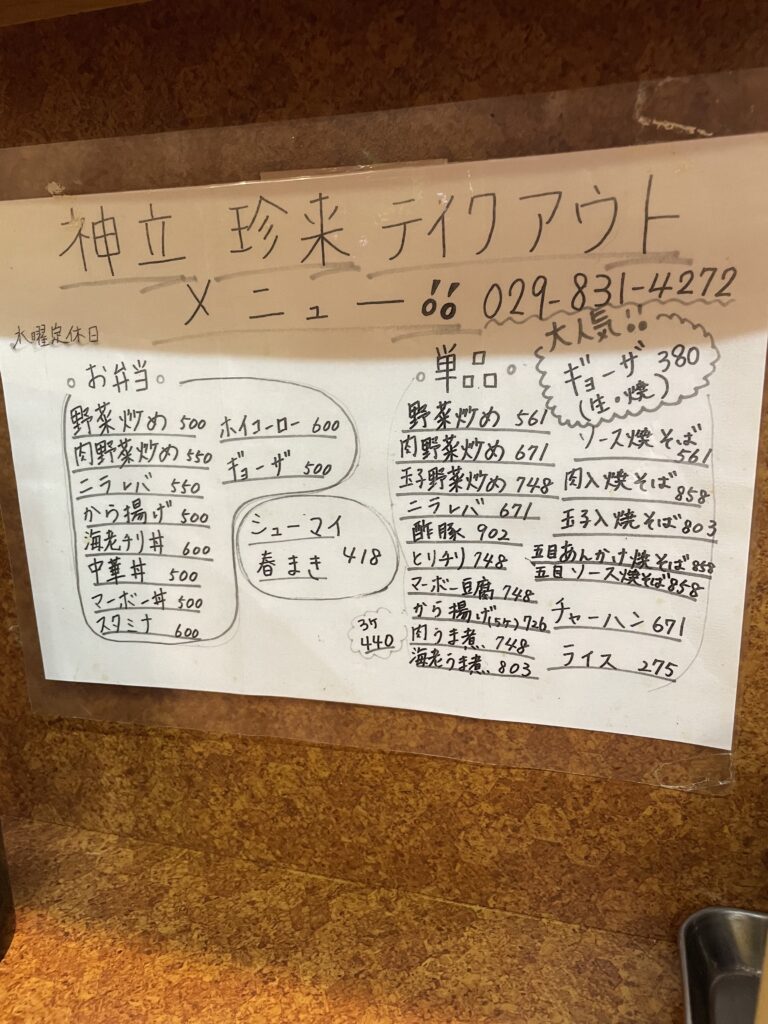 神立 珍来 テイクアウト
メニュー!! 029-831-4272
水曜定休日
お弁当
野菜炒め 500
肉野菜炒め 550
ニラレバ 550
から揚げ 500
海老チリ丼 600
中華丼 500
マーボー丼 500
スタミナ 600
ホイコーロー 600
ギョーザ 500
シューマイ
春まき 418
単品
大人気!!
ギョーザ 380
(生・焼)
野菜炒め 561
肉野菜炒め 671
玉子野菜炒め 748
ニラレバ 671
酢豚 902
とりチリ 748
マーボー豆腐 748
から揚げ(5ヶ) 726
3ヶ
440
肉うま煮 748
海老うま煮 803
ソース焼そば
561
肉入焼そば 858
玉子入焼そば 803
五目あんかけ焼そば 858
五目ソース焼そば 858
チャーハン 671
ライス 275